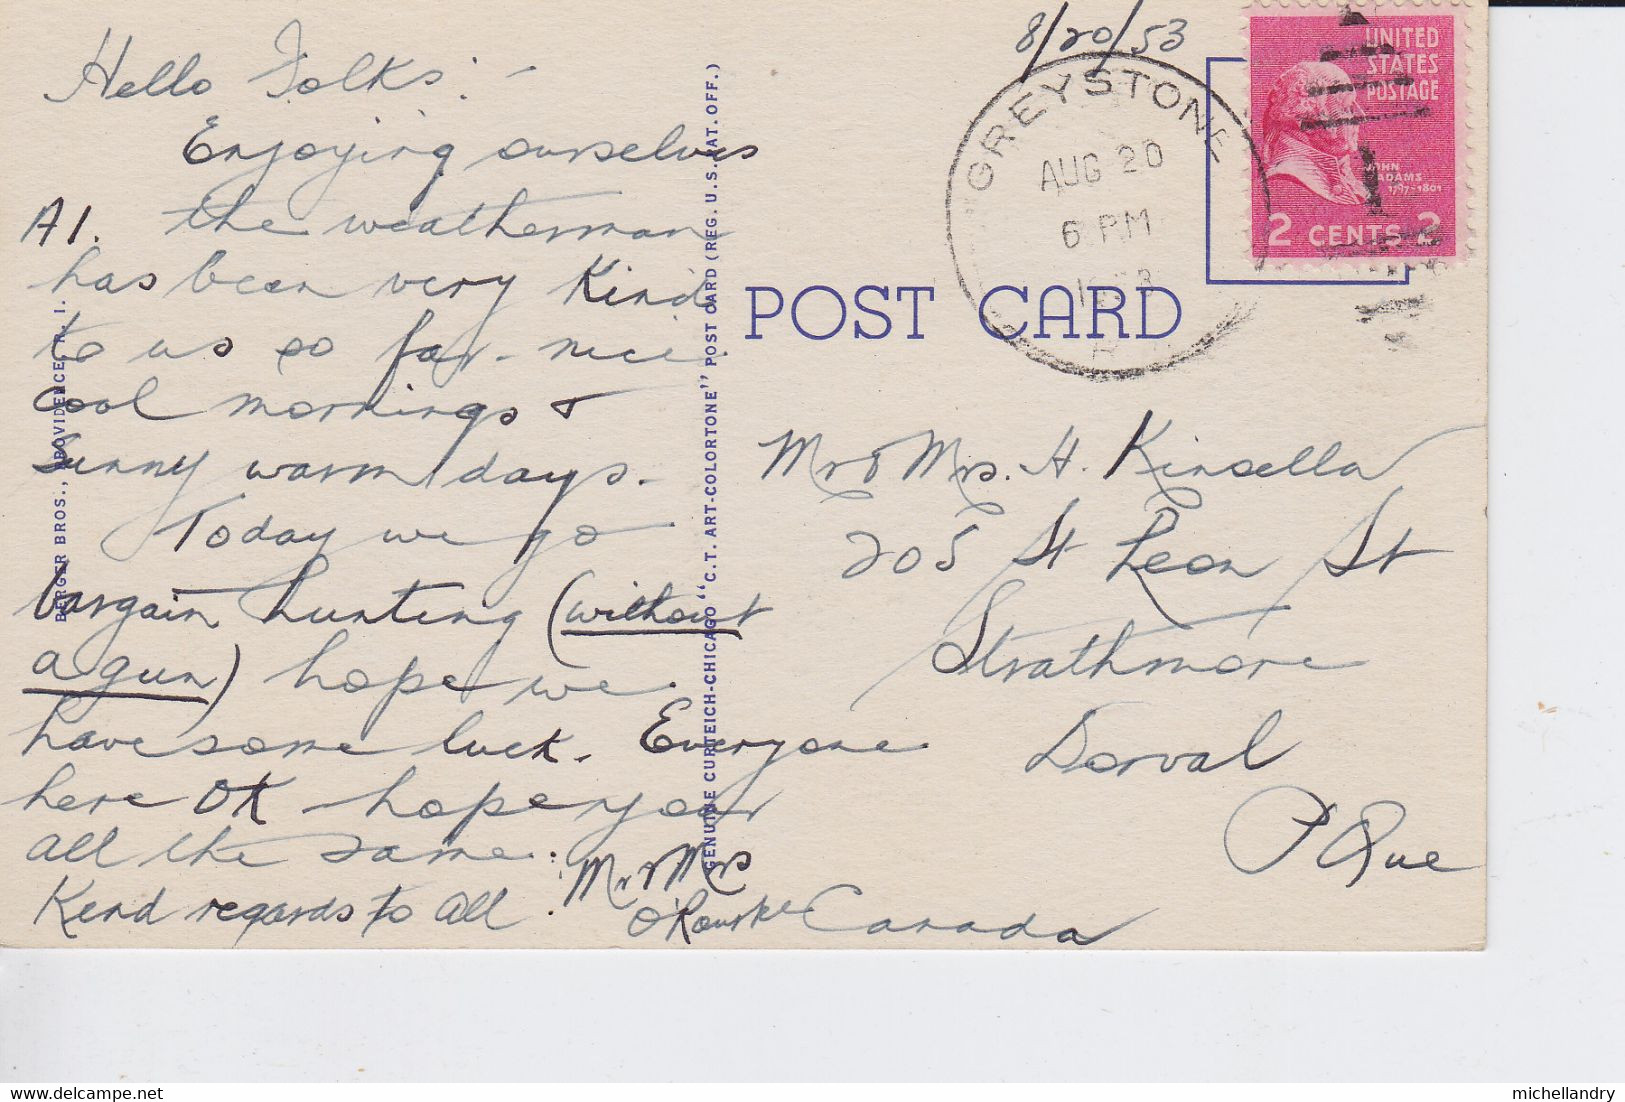 8/20/53
Hello Folks: -
Enjoying ourselves
A1. the weatherman
has been very Kind
to us so far - nice
cool mornings &
Sunny warm days.
Today we go
bargain hunting (without
a gun) hope we
have some luck. Everyone
here OK hope you
all the same.
Kind regards to all.
Mr & Mrs
O'Rourke
BERGER BROS., PROVIDENCE, R. I.
GENUINE CURTEICH-CHICAGO "C.T. ART-COLORTONE" POST CARD (REG. U.S. PAT. OFF.)
POST CARD
GREYSTONE
AUG 20
6 PM
R
UNITED
STATES
POSTAGE
JOHN
ADAMS
1797-1801
2 CENTS 2
Mr & Mrs. H. Kinsella
205 St Leon St
Strathmore
Dorval
P Que
Canada
michellandry